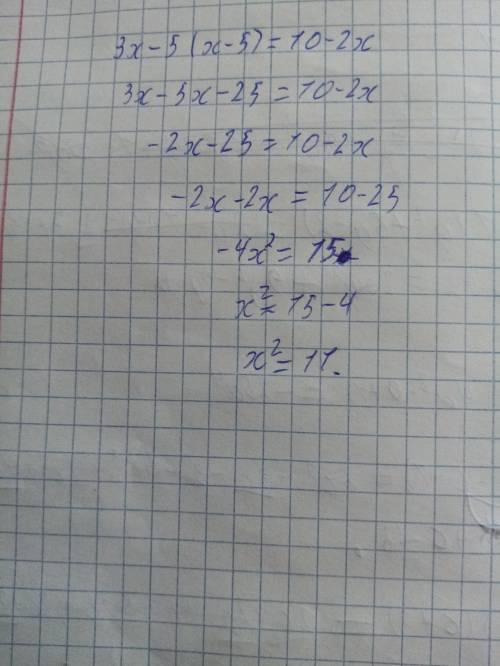 3x-5(x-5)=10-2x
3x-5x-25=10-2x
-2x-25=10-2x
-2x-2x=10-25
-4x²=15
x²=15-4
x²=11.